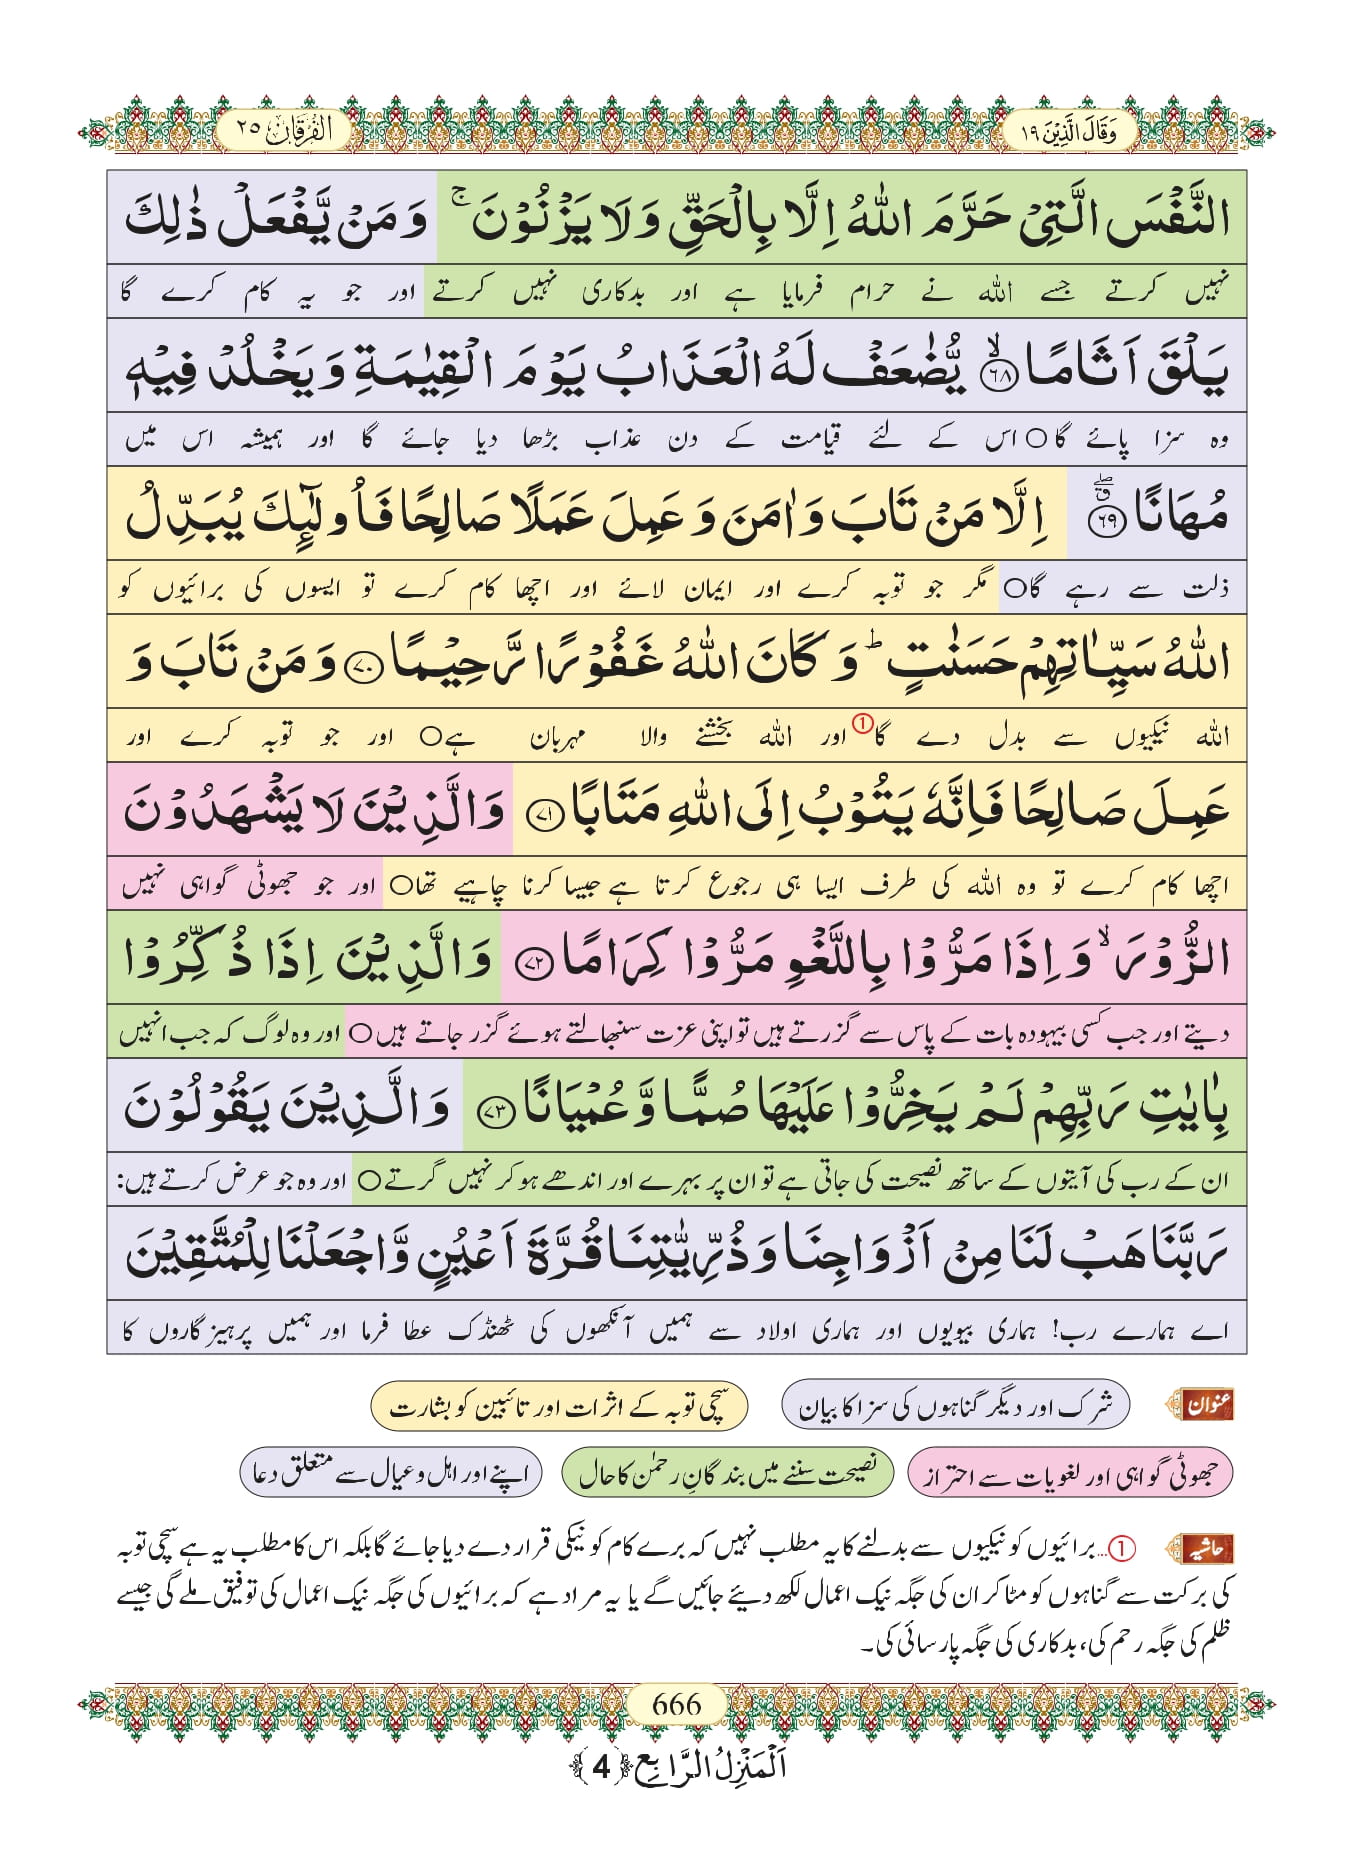 وَقَالَ الَّذِیْنَ ۱۹
الْفُرْقَان ۲۵
النَّفْسَ الَّتِیْ حَرَّمَ اللّٰهُ اِلَّا بِالْحَقِّ وَ لَا یَزْنُوْنَ ۚ وَ مَنْ یَّفْعَلْ ذٰلِكَ
نہیں کرتے جسے اللہ نے حرام فرمایا ہے اور بدکاری نہیں کرتے اور جو یہ کام کرے گا
یَلْقَ اَثَامًا ۙ﴿۶۸﴾ یُّضٰعَفْ لَهُ الْعَذَابُ یَوْمَ الْقِیٰمَةِ وَ یَخْلُدْ فِیْهٖ
وہ سزا پائے گا○ اس کے لئے قیامت کے دن عذاب بڑھا دیا جائے گا اور ہمیشہ اس میں
مُهَانًا ﴿۶۹﴾ اِلَّا مَنْ تَابَ وَ اٰمَنَ وَ عَمِلَ عَمَلًا صَالِحًا فَاُولٰٓىٕكَ یُبَدِّلُ
ذلت سے رہے گا○ مگر جو توبہ کرے اور ایمان لائے اور اچھا کام کرے تو ایسوں کی برائیوں کو
اللّٰهُ سَیِّاٰتِهِمْ حَسَنٰتٍ ؕ وَ كَانَ اللّٰهُ غَفُوْرًا رَّحِیْمًا ﴿۷۰﴾ وَ مَنْ تَابَ وَ
اللہ نیکیوں سے بدل دے گا① اور اللہ بخشنے والا مہربان ہے○ اور جو توبہ کرے اور
عَمِلَ صَالِحًا فَاِنَّهٗ یَتُوْبُ اِلَى اللّٰهِ مَتَابًا ﴿۷۱﴾ وَ الَّذِیْنَ لَا یَشْهَدُوْنَ
اچھا کام کرے تو وہ اللہ کی طرف ایسا ہی رجوع کرتا ہے جیسا کرنا چاہیے تھا○ اور جو جھوٹی گواہی نہیں
الزُّوْرَ ۙ وَ اِذَا مَرُّوْا بِاللَّغْوِ مَرُّوْا كِرَامًا ﴿۷۲﴾ وَ الَّذِیْنَ اِذَا ذُكِّرُوْا
دیتے اور جب کسی بیہودہ بات کے پاس سے گزرتے ہیں تو اپنی عزت سنبھالتے ہوئے گزر جاتے ہیں○ اور وہ لوگ کہ جب انہیں
بِاٰیٰتِ رَبِّهِمْ لَمْ یَخِرُّوْا عَلَیْهَا صُمًّا وَّ عُمْیَانًا ﴿۷۳﴾ وَ الَّذِیْنَ یَقُوْلُوْنَ
ان کے رب کی آیتوں کے ساتھ نصیحت کی جاتی ہے تو ان پر بہرے اور اندھے ہو کر نہیں گرتے○ اور وہ جو عرض کرتے ہیں:
رَبَّنَا هَبْ لَنَا مِنْ اَزْوَاجِنَا وَ ذُرِّیّٰتِنَا قُرَّةَ اَعْیُنٍ وَّ اجْعَلْنَا لِلْمُتَّقِیْنَ
اے ہمارے رب! ہماری بیویوں اور ہماری اولاد سے ہمیں آنکھوں کی ٹھنڈک عطا فرما اور ہمیں پرہیز گاروں کا
عنوان شرک اور دیگر گناہوں کی سزا کا بیان سچی توبہ کے اثرات اور تائبین کو بشارت
جھوٹی گواہی اور لغویات سے احتراز نصیحت سننے میں بندگانِ رحمٰن کا حال اپنے اور اہل و عیال سے متعلق دعا
حاشیہ ①...برائیوں کو نیکیوں سے بدلنے کا یہ مطلب نہیں کہ برے کام کو نیکی قرار دے دیا جائے گا بلکہ اس کا مطلب یہ ہے سچی توبہ
کی برکت سے گناہوں کو مٹا کر ان کی جگہ نیک اعمال لکھ دیئے جائیں گے یا یہ مراد ہے کہ برائیوں کی جگہ نیک اعمال کی توفیق ملے گی جیسے
ظلم کی جگہ رحم کی، بدکاری کی جگہ پارسائی کی۔
666
اَلْمَنْزِلُ الرَّابِع ﴿4﴾